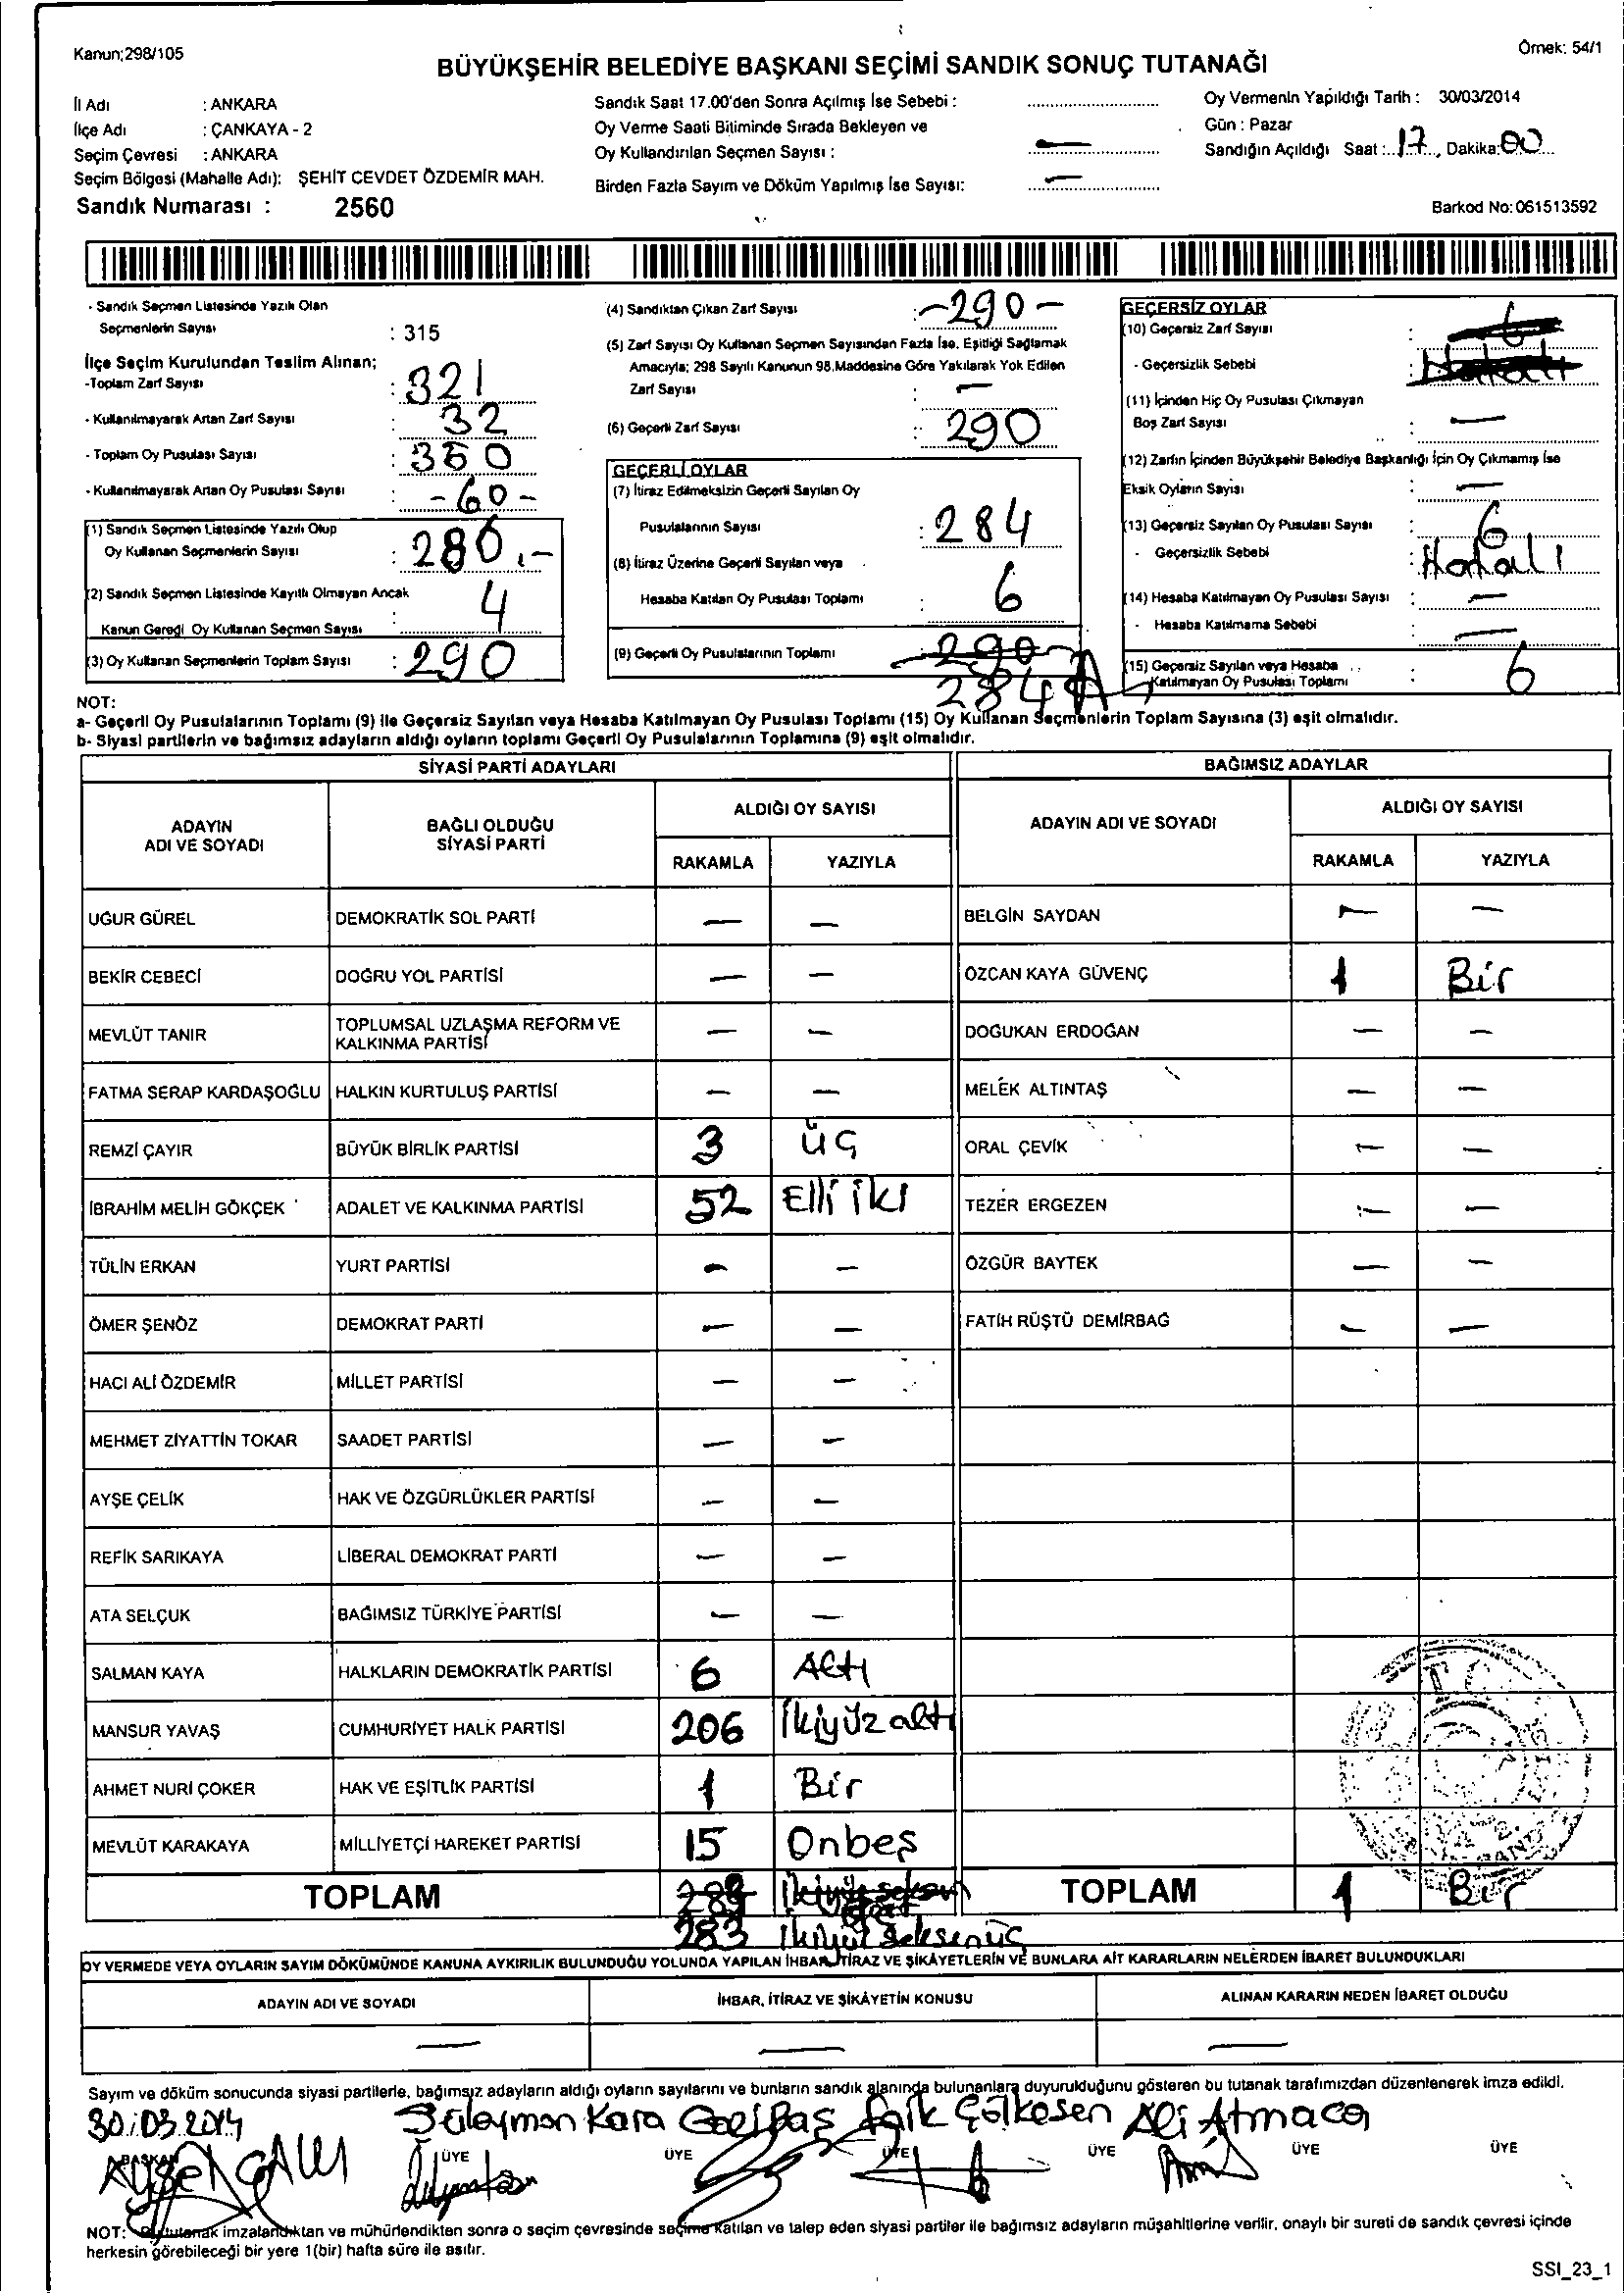 Kanun;298/105
Örnek: 54/1
BÜYÜKŞEHİR BELEDİYE BAŞKANI SEÇİMİ SANDIK SONUÇ TUTANAĞI
İl Adı : ANKARA
İlçe Adı : ÇANKAYA - 2
Seçim Çevresi : ANKARA
Seçim Bölgesi (Mahalle Adı): ŞEHİT CEVDET ÖZDEMİR MAH.
Sandık Numarası : 2560
Sandık Saat 17.00'den Sonra Açılmış İse Sebebi :
Oy Verme Saati Bitiminde Sırada Bekleyen ve
Oy Kullandırılan Seçmen Sayısı : —
Birden Fazla Sayım ve Döküm Yapılmış İse Sayısı: —
Oy Vermenin Yapıldığı Tarih : 30/03/2014
Gün : Pazar
Sandığın Açıldığı Saat : 17, Dakika: 00
Barkod No: 061513592
- Sandık Seçmen Listesinde Yazılı Olan
Seçmenlerin Sayısı : 315
İlçe Seçim Kurulundan Teslim Alınan;
-Toplam Zarf Sayısı : 321
- Kullanılmayarak Artan Zarf Sayısı : 32
- Toplam Oy Pusulası Sayısı : 350
- Kullanılmayarak Artan Oy Pusulası Sayısı : -60-
(1) Sandık Seçmen Listesinde Yazılı Olup
Oy Kullanan Seçmenlerin Sayısı : 286,-
(2) Sandık Seçmen Listesinde Kayıtlı Olmayan Ancak
Kanun Gereği Oy Kullanan Seçmen Sayısı : 4
(3) Oy Kullanan Seçmenlerin Toplam Sayısı : 290
(4) Sandıktan Çıkan Zarf Sayısı : -290-
(5) Zarf Sayısı Oy Kullanan Seçmen Sayısından Fazla İse, Eşitliği Sağlamak
Amacıyla; 298 Sayılı Kanunun 98.Maddesine Göre Yakılarak Yok Edilen
Zarf Sayısı : —
(6) Geçerli Zarf Sayısı : 290
GEÇERLİ OYLAR
(7) İtiraz Edilmeksizin Geçerli Sayılan Oy
Pusulalarının Sayısı : 284
(8) İtiraz Üzerine Geçerli Sayılan veya
Hesaba Katılan Oy Pusulası Toplamı : 6
(9) Geçerli Oy Pusulalarının Toplamı 290
284
GEÇERSİZ OYLAR
(10) Geçersiz Zarf Sayısı : 6
- Geçersizlik Sebebi : Hatalı
(11) İçinden Hiç Oy Pusulası Çıkmayan
Boş Zarf Sayısı : —
(12) Zarfın İçinden Büyükşehir Belediye Başkanlığı İçin Oy Çıkmamış İse
Eksik Oyların Sayısı : —
(13) Geçersiz Sayılan Oy Pusulası Sayısı : 6
- Geçersizlik Sebebi : Hatalı
(14) Hesaba Katılmayan Oy Pusulası Sayısı : —
- Hesaba Katılmama Sebebi : —
(15) Geçersiz Sayılan veya Hesaba
Katılmayan Oy Pusulası Toplamı : 6
NOT:
a- Geçerli Oy Pusulalarının Toplamı (9) ile Geçersiz Sayılan veya Hesaba Katılmayan Oy Pusulası Toplamı (15) Oy Kullanan Seçmenlerin Toplam Sayısına (3) eşit olmalıdır.
b- Siyasi partilerin ve bağımsız adayların aldığı oyların toplamı Geçerli Oy Pusulalarının Toplamına (9) eşit olmalıdır.
SİYASİ PARTİ ADAYLARI
ADAYIN ADI VE SOYADI BAĞLI OLDUĞU SİYASİ PARTİ ALDIĞI OY SAYISI
RAKAMLA YAZIYLA
UĞUR GÜREL DEMOKRATİK SOL PARTİ — —
BEKİR CEBECİ DOĞRU YOL PARTİSİ — —
MEVLÜT TANIR TOPLUMSAL UZLAŞMA REFORM VE KALKINMA PARTİSİ — —
FATMA SERAP KARDAŞOĞLU HALKIN KURTULUŞ PARTİSİ — —
REMZİ ÇAYIR BÜYÜK BİRLİK PARTİSİ 3 üç
İBRAHİM MELİH GÖKÇEK ADALET VE KALKINMA PARTİSİ 52 Elli iki
TÜLİN ERKAN YURT PARTİSİ — —
ÖMER ŞENÖZ DEMOKRAT PARTİ — —
HACI ALİ ÖZDEMİR MİLLET PARTİSİ — —
MEHMET ZİYATTİN TOKAR SAADET PARTİSİ — —
AYŞE ÇELİK HAK VE ÖZGÜRLÜKLER PARTİSİ — —
REFİK SARIKAYA LİBERAL DEMOKRAT PARTİ — —
ATA SELÇUK BAĞIMSIZ TÜRKİYE PARTİSİ — —
SALMAN KAYA HALKLARIN DEMOKRATİK PARTİSİ 6 Altı
MANSUR YAVAŞ CUMHURİYET HALK PARTİSİ 206 İkiyüz altı
AHMET NURİ ÇOKER HAK VE EŞİTLİK PARTİSİ 1 Bir
MEVLÜT KARAKAYA MİLLİYETÇİ HAREKET PARTİSİ 15 Onbeş
TOPLAM
283 İkiyüz seksenüç
BAĞIMSIZ ADAYLAR
ADAYIN ADI VE SOYADI ALDIĞI OY SAYISI
RAKAMLA YAZIYLA
BELGİN SAYDAN — —
ÖZCAN KAYA GÜVENÇ 1 Bir
DOĞUKAN ERDOĞAN — —
MELEK ALTINTAŞ — —
ORAL ÇEVİK — —
TEZER ERGEZEN — —
ÖZGÜR BAYTEK — —
FATİH RÜŞTÜ DEMİRBAĞ — —
TOPLAM 1 Bir
OY VERMEDE VEYA OYLARIN SAYIM DÖKÜMÜNDE KANUNA AYKIRILIK BULUNDUĞU YOLUNDA YAPILAN İHBAR, İTİRAZ VE ŞİKÂYETLERİN VE BUNLARA AİT KARARLARIN NELERDEN İBARET BULUNDUKLARI
ADAYIN ADI VE SOYADI İHBAR, İTİRAZ VE ŞİKÂYETİN KONUSU ALINAN KARARIN NEDEN İBARET OLDUĞU
— — —
Sayım ve döküm sonucunda siyasi partilerle, bağımsız adayların aldığı oyların sayılarını ve bunların sandık alanında bulunanlara duyurulduğunu gösteren bu tutanak tarafımızdan düzenlenerek imza edildi.
30.03.2014 Süleyman Kara Faik Gölkesen Ali Atmaca
BAŞKAN ÜYE ÜYE ÜYE ÜYE ÜYE ÜYE
NOT: Bu tutanak imzalandıktan ve mühürlendikten sonra o seçim çevresinde seçime katılan ve talep eden siyasi partiler ile bağımsız adayların müşahitlerine verilir, onaylı bir sureti de sandık çevresi içinde
herkesin görebileceği bir yere 1(bir) hafta süre ile asılır.
SSI_23_1